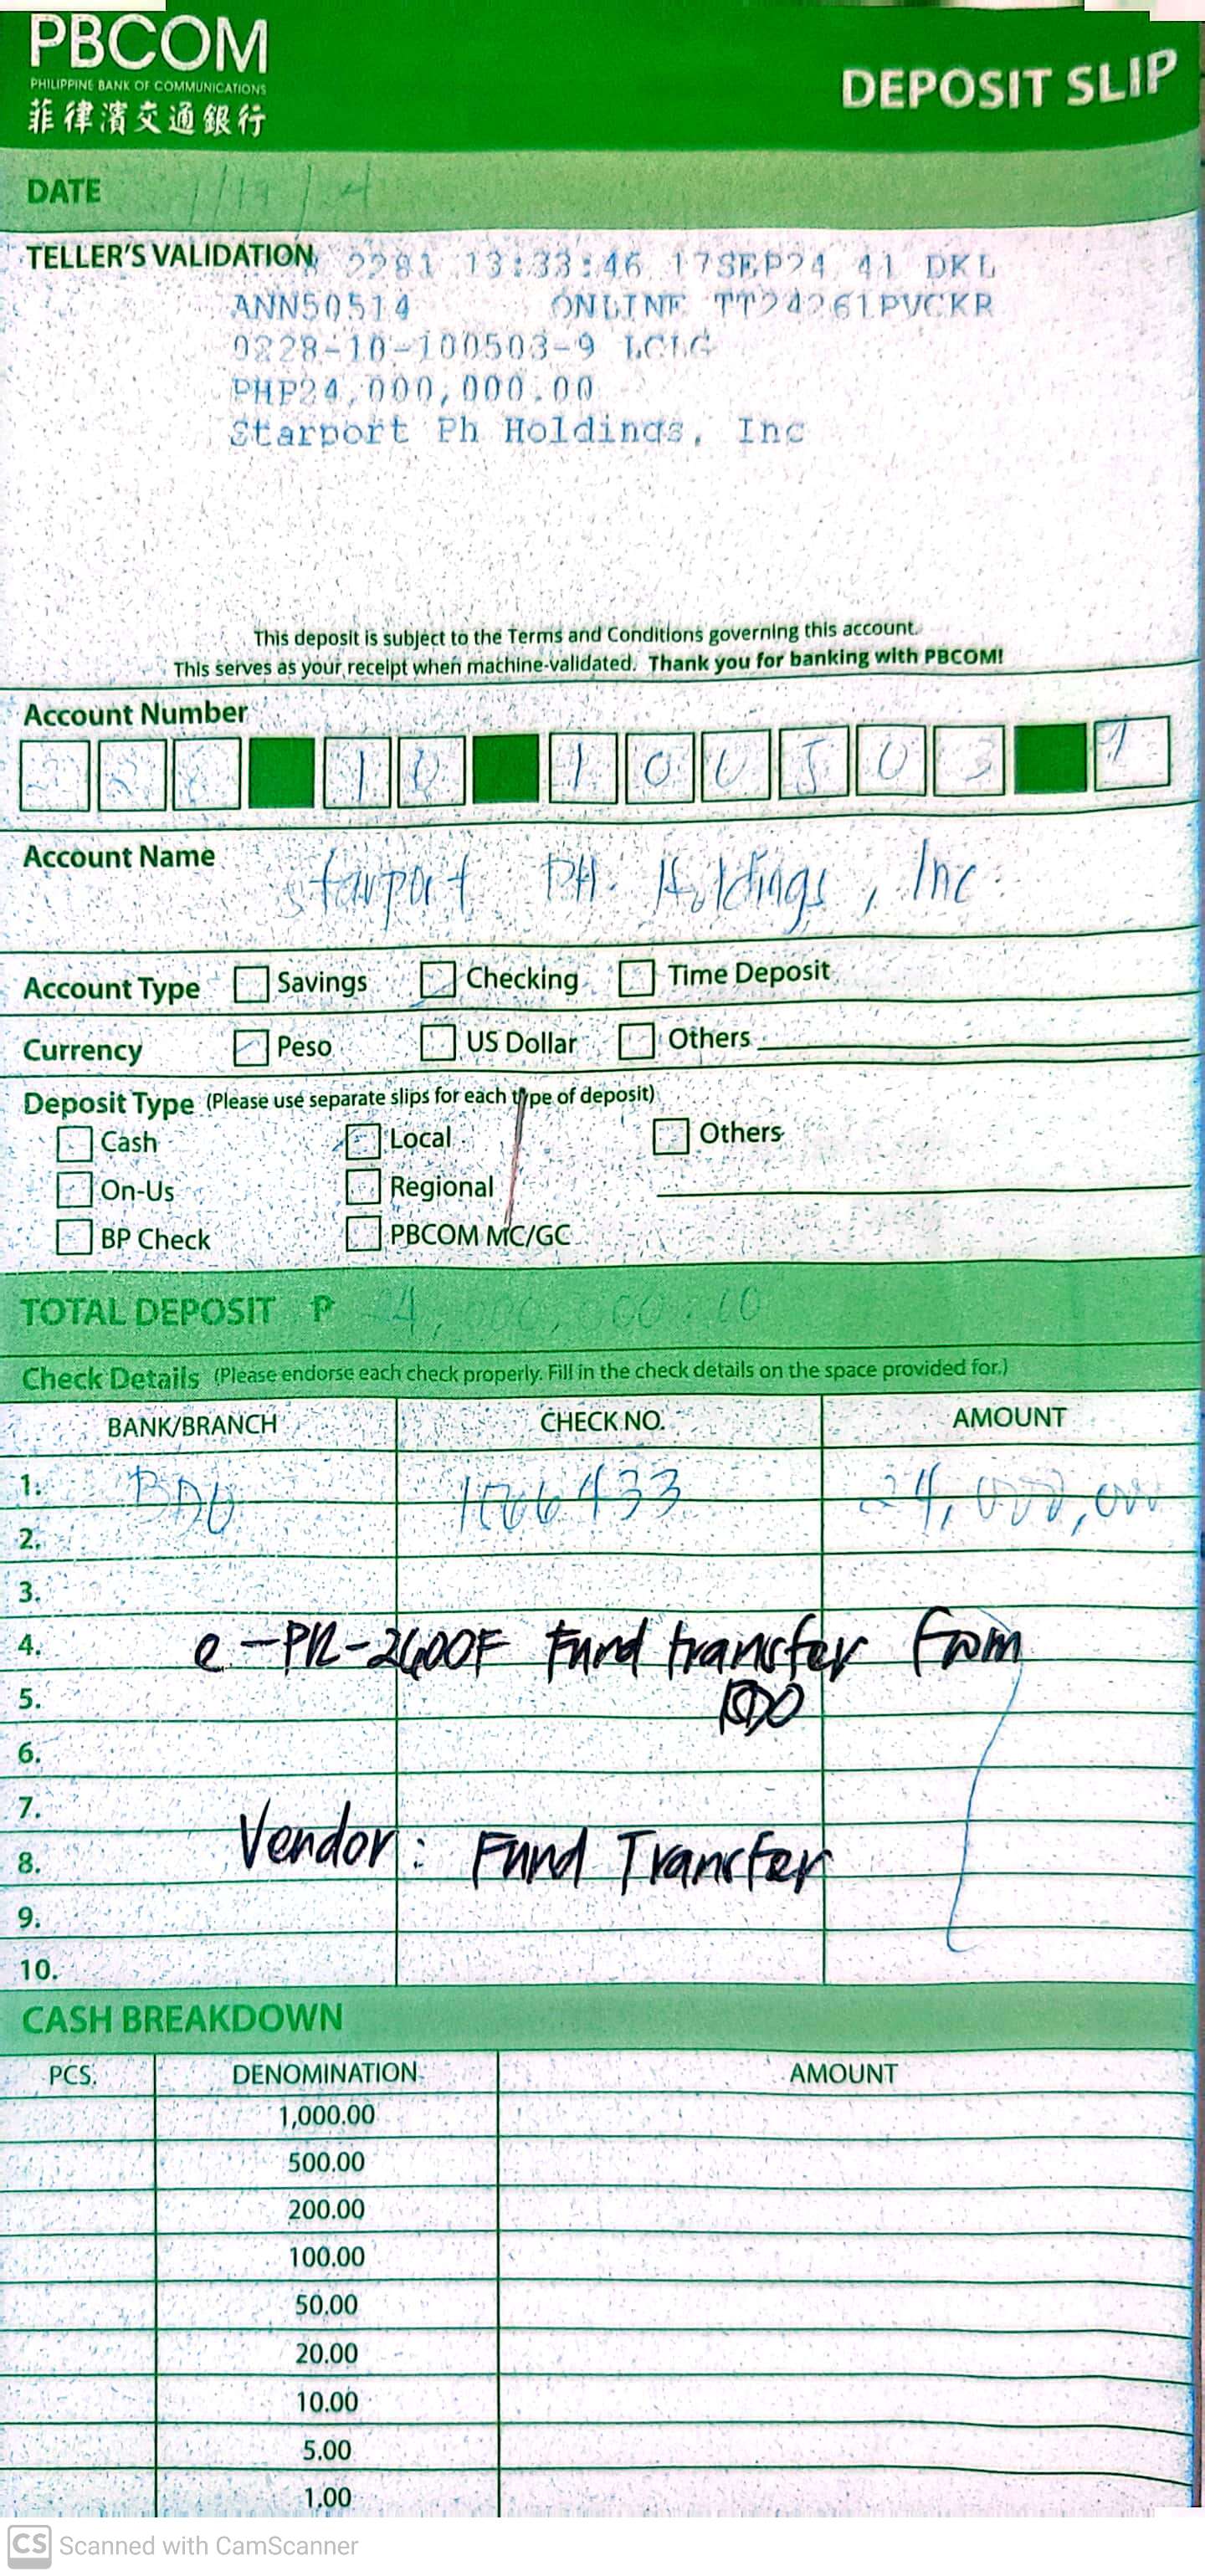 PBCOM
PHILIPPINE BANK OF COMMUNICATIONS
菲律濱交通銀行
DEPOSIT SLIP
DATE
TELLER'S VALIDATION 2281 13:33:46 17SEP24 41 DKL
ANN50514 ONLINE TT24261PVCKR
0228-10-100503-9 LCLG
PHP24,000,000.00
Starport Ph Holdings, Inc
This deposit is subject to the Terms and Conditions governing this account.
This serves as your receipt when machine-validated. Thank you for banking with PBCOM!
Account Number
228 10 100503 9
Account Name Starport PH. Holdings, Inc.
Account Type Savings Checking Time Deposit
Currency Peso US Dollar Others
Deposit Type (Please use separate slips for each type of deposit)
Cash Local Others
On-Us Regional
BP Check PBCOM MC/GC
TOTAL DEPOSIT ₱ 24,000,000.00
Check Details (Please endorse each check properly. Fill in the check details on the space provided for.)
BANK/BRANCH CHECK NO. AMOUNT
1. BDO 24,000,000
2.
3.
4. e-PR-2400F Fund transfer from
5. BDO
6.
7.
8. Vendor: Fund Transfer
9.
10.
CASH BREAKDOWN
PCS. DENOMINATION AMOUNT
1,000.00
500.00
200.00
100.00
50.00
20.00
10.00
5.00
1.00
CS Scanned with CamScanner